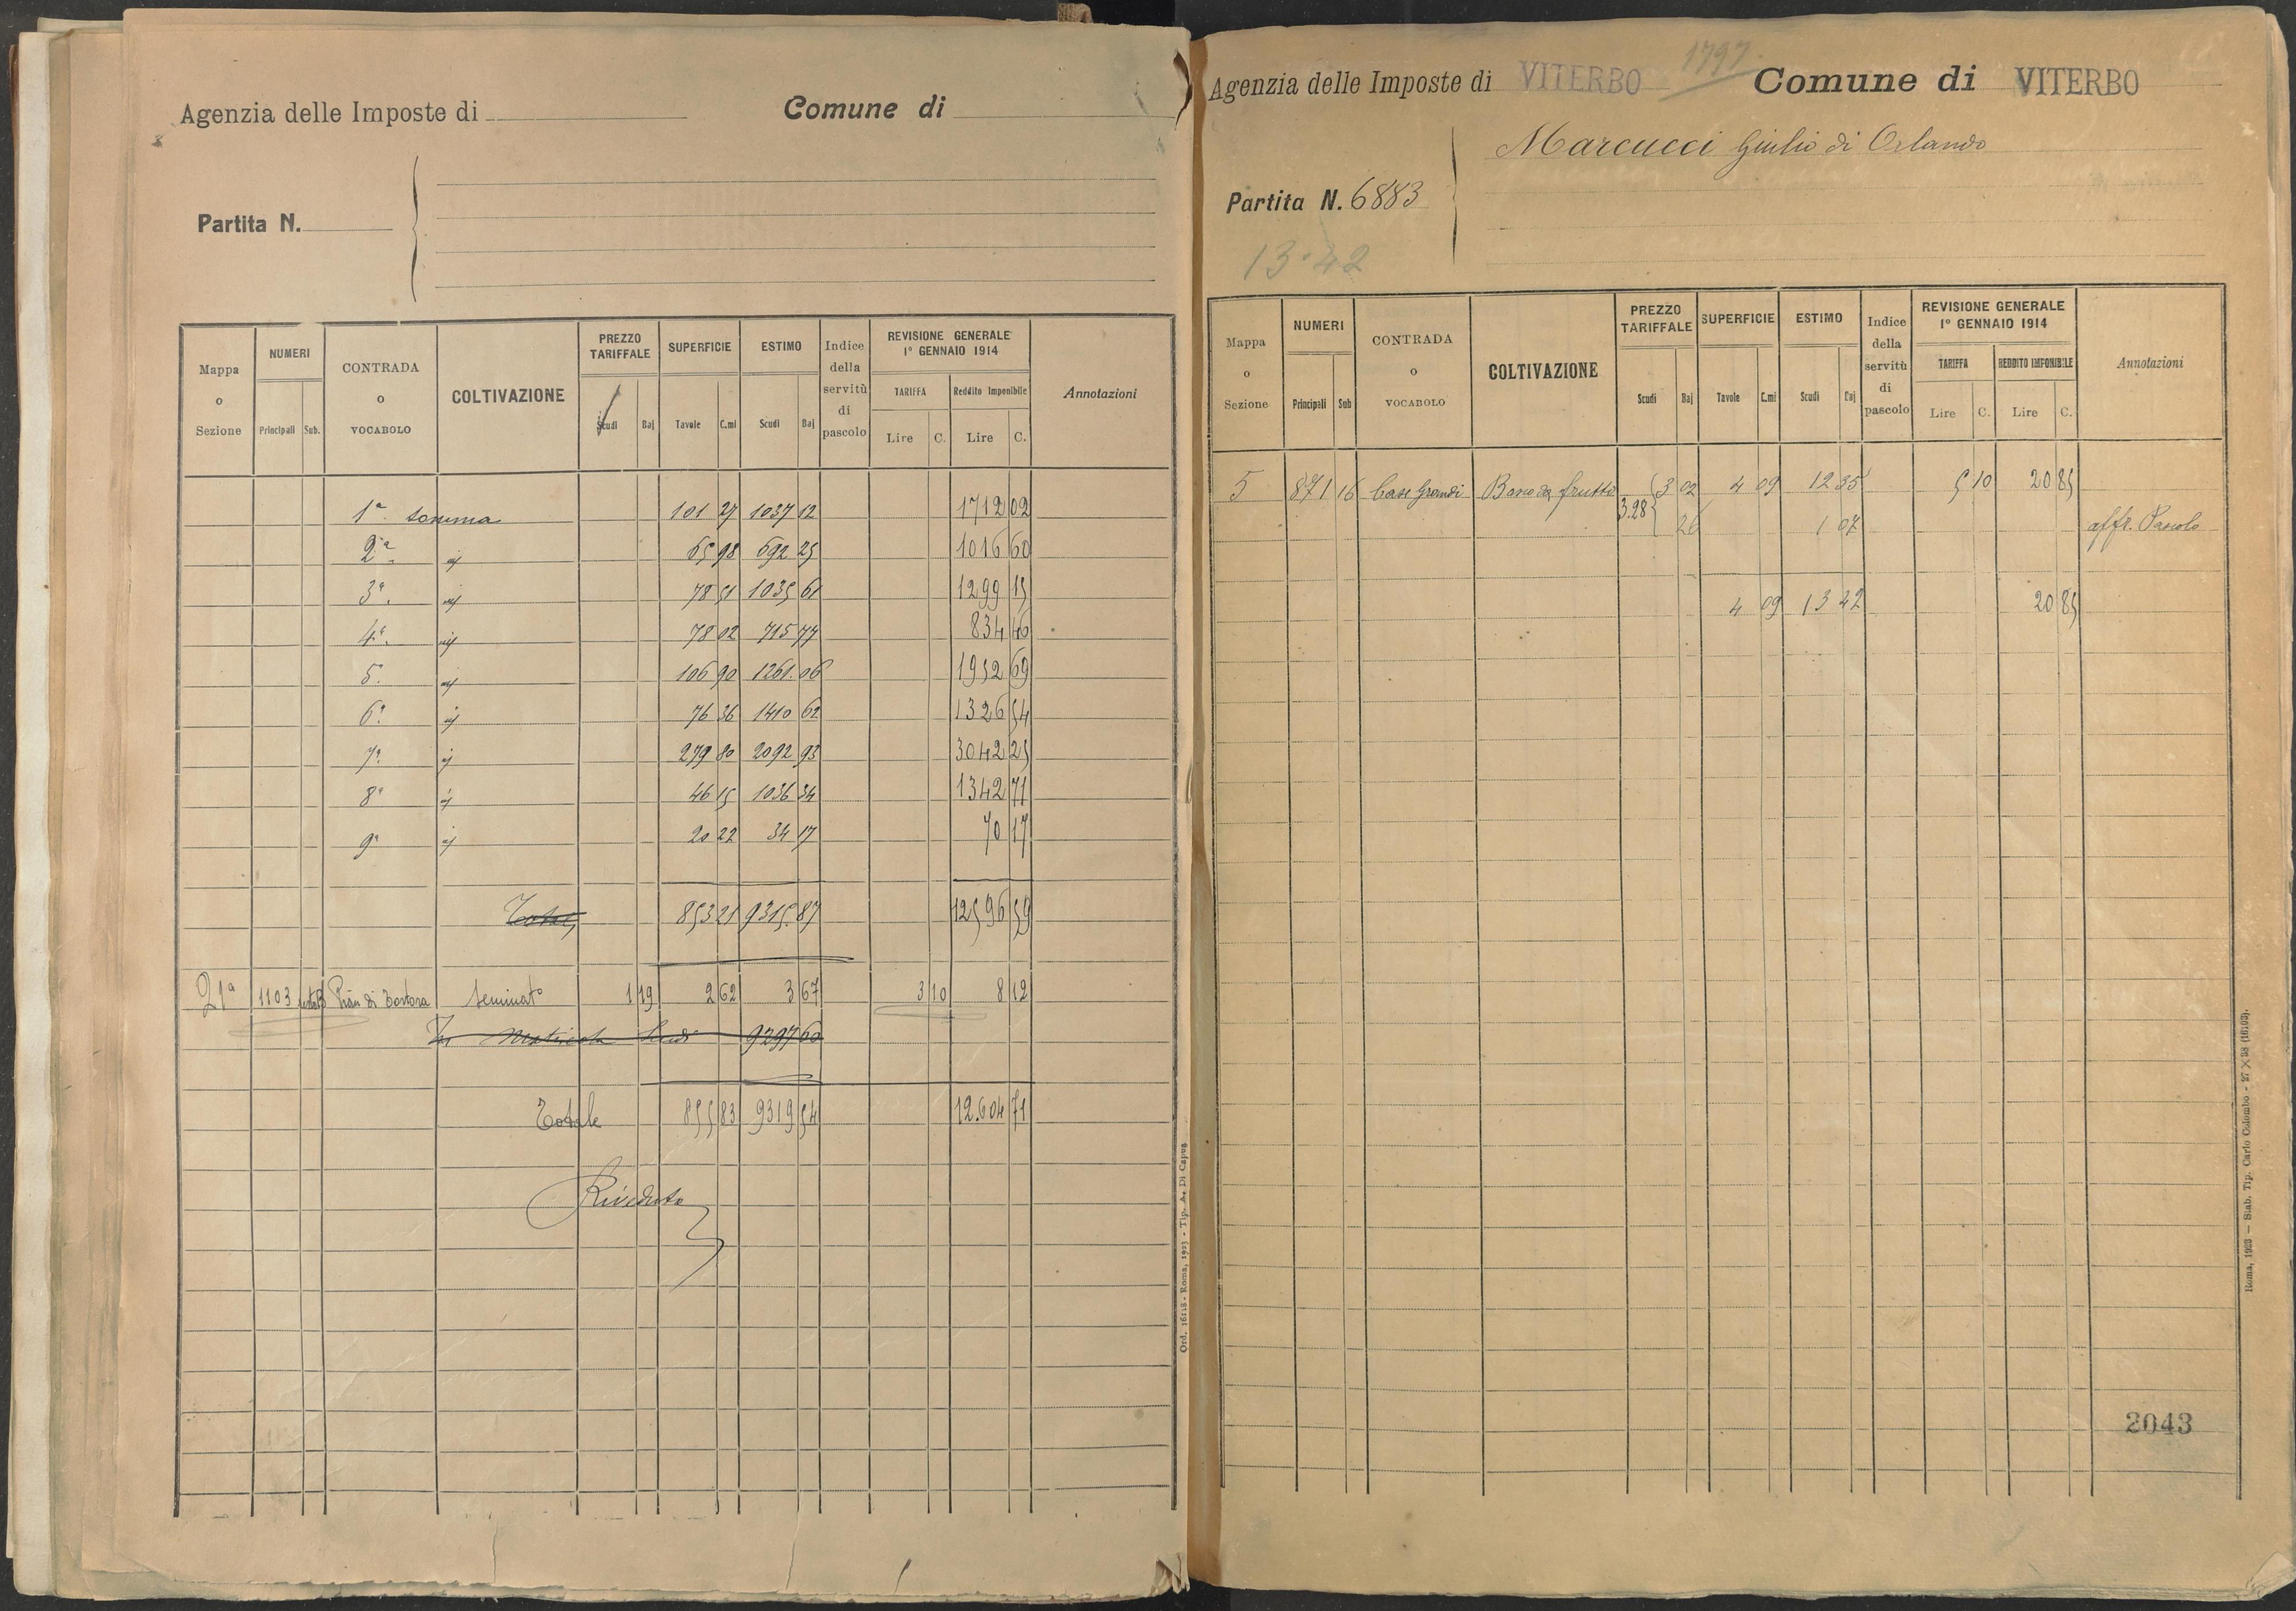 Agenzia delle Imposte di
Comune di
Partita N.
Mappa o Sezione
NUMERI
Principali Sub.
CONTRADA o VOCABOLO
COLTIVAZIONE
PREZZO TARIFFALE
Scudi Baj
SUPERFICIE
Tavole C.mi
ESTIMO
Scudi Baj
Indice della servitù di pascolo
REVISIONE GENERALE 1° GENNAIO 1914
TARIFFA
Lire C.
Reddito Imponibile
Lire C.
Annotazioni
1ª somma 101 27 1037 12 1712 02
2ª 65 98 692 25 1016 60
3ª 78 51 1035 61 1299 15
4ª 78 02 715 77 834 46
5ª 106 90 1261.06 1952 69
6ª 76 36 1410 62 1326 54
7ª 279 80 2092 93 3042 25
8ª 46 15 1036 34 1342 71
9ª 20 22 34 17 70 17
Totale 853 21 9315.87 12596 59
21ª 1103 Pian di Tortora seminato 1 19 2 62 3 67 3 10 8 12
In Matricola Scudi 9297 60
Totale 855 83 9319 54 12.604 71
Riveduto
Ord. 16118 - Roma, 1923 - Tip. A. Di Capua
Agenzia delle Imposte di VITERBO 1797 Comune di VITERBO
Marcucci Giulio di Orlando
Partita N. 6883
13.42
Mappa o Sezione
NUMERI
Principali Sub
CONTRADA o VOCABOLO
COLTIVAZIONE
PREZZO TARIFFALE
Scudi Baj
SUPERFICIE
Tavole C.mi
ESTIMO
Scudi Baj
Indice della servitù di pascolo
REVISIONE GENERALE 1° GENNAIO 1914
TARIFFA
Lire C.
REDDITO IMPONIBILE
Lire C.
Annotazioni
5 871 16 Case Grandi Bosco da frutto 3 02 4 09 12 35 5 10 20 85
3.28 26 1 07 affr. Pascolo
4 09 13 42 20 85
2043
Roma, 1923 — Stab. Tip. Carlo Colombo - 27 X 38 (16103).